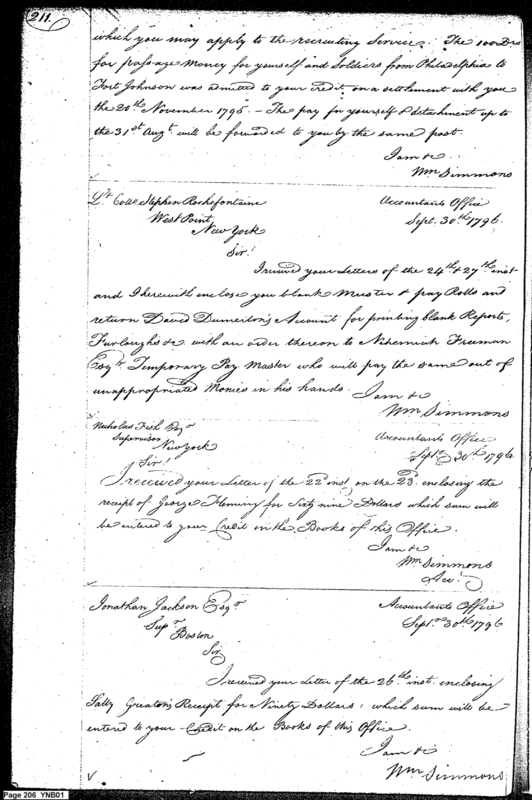 211.
which you may apply to the recruiting Service. The 100 Drs
for passage Money for yourself and Soldiers from Philadelphia to
Fort Johnson was admitted to your credit on a settlement with you
the 20th November 1795. - The pay for yourself & detachment up to
the 31st Augt. will be forwarded to you by the same post.
I am &c
Wm Simmons
Lt. Colle Stephen Rochefontaine
Accountants Office
West Point
Sept. 30th 1796.
New York
Sir!
I received your Letters of the 24th & 27th inst
and I herewith enclose you blank Muster & pay Rolls and
return David Dumerton's Account for printing blank Reports,
Furloughs &c with an order thereon to Nehemiah Freeman
Esqr Temporary Pay Master who will pay the same out of
unappropriated Monies in his hands.
I am &c
Wm Simmons
Nicholas Fish Esqr
Accountants Office
Supervisor
Septr 30th 1796
New York
Sir!
I received your Letter of the 22d inst on the 23. enclosing the
receipt of George Fleming for Sixty nine Dollars which sum will
be entered to your Credit in the Books of this Office.
I am &c
Wm Simmons
Acct.
Jonathan Jackson Esqr
Accountants Office
Supr
Septr 30th 1796
Boston
Sir
I received your Letter of the 26th inst. enclosing
Sally Greaton's Receipt for Ninety Dollars: which sum will be
entered to your Credit on the Books of this Office.
I am &c
Wm Simmons
Page 206 YNB01